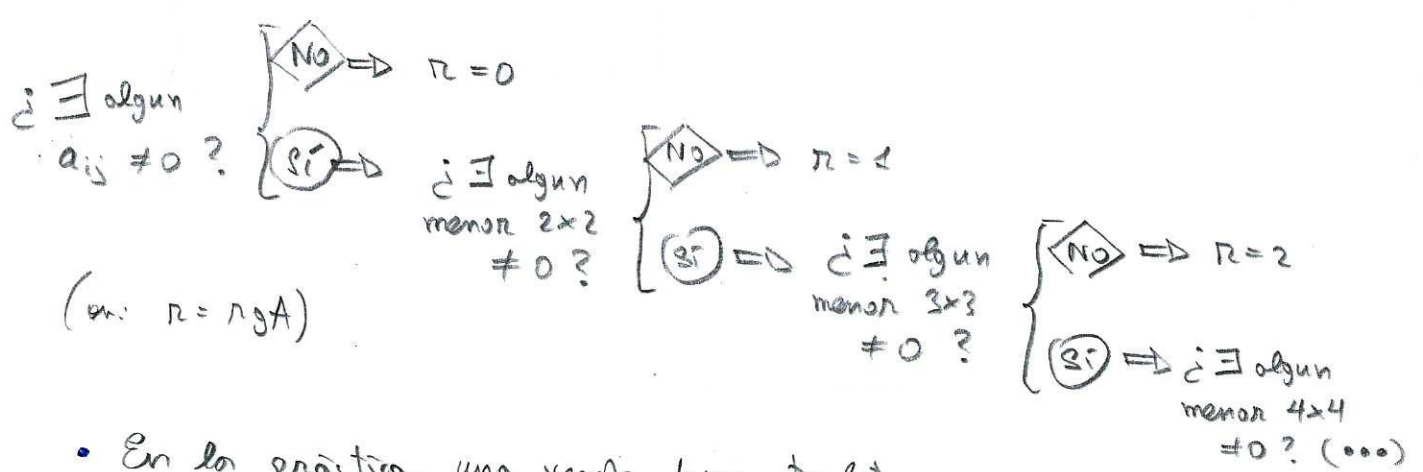 ¿ ∃ algun
a_ij ≠ 0 ?
NO ⇒ r = 0
SÍ ⇒ ¿ ∃ algun
menor 2×2
≠ 0 ?
NO ⇒ r = 1
SÍ ⇒ ¿ ∃ algun
menor 3×3
≠ 0 ?
NO ⇒ r = 2
SÍ ⇒ ¿ ∃ algun
menor 4×4
≠ 0 ? (•••)
r = rgA)
• En la práctica una vez